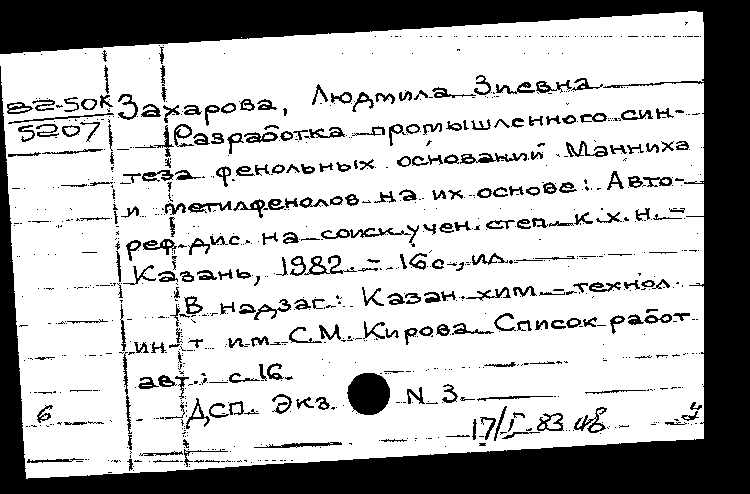 82-50К
5207
Захарова, Людмила Зиевна
Разработка промышленного син-
теза фенольных оснований Манниха
и метилфенолов на их основе: Авто-
реф. дис. на соиск. учен. степ. к.х.н. -
Казань, 1982. - 16с., ил.
В надзаг.: Казан. хим.-технол.
ин-т им. С.М. Кирова. Список работ
авт.: с.16.
ДСП. Экз. N 3.
6
17/I-83